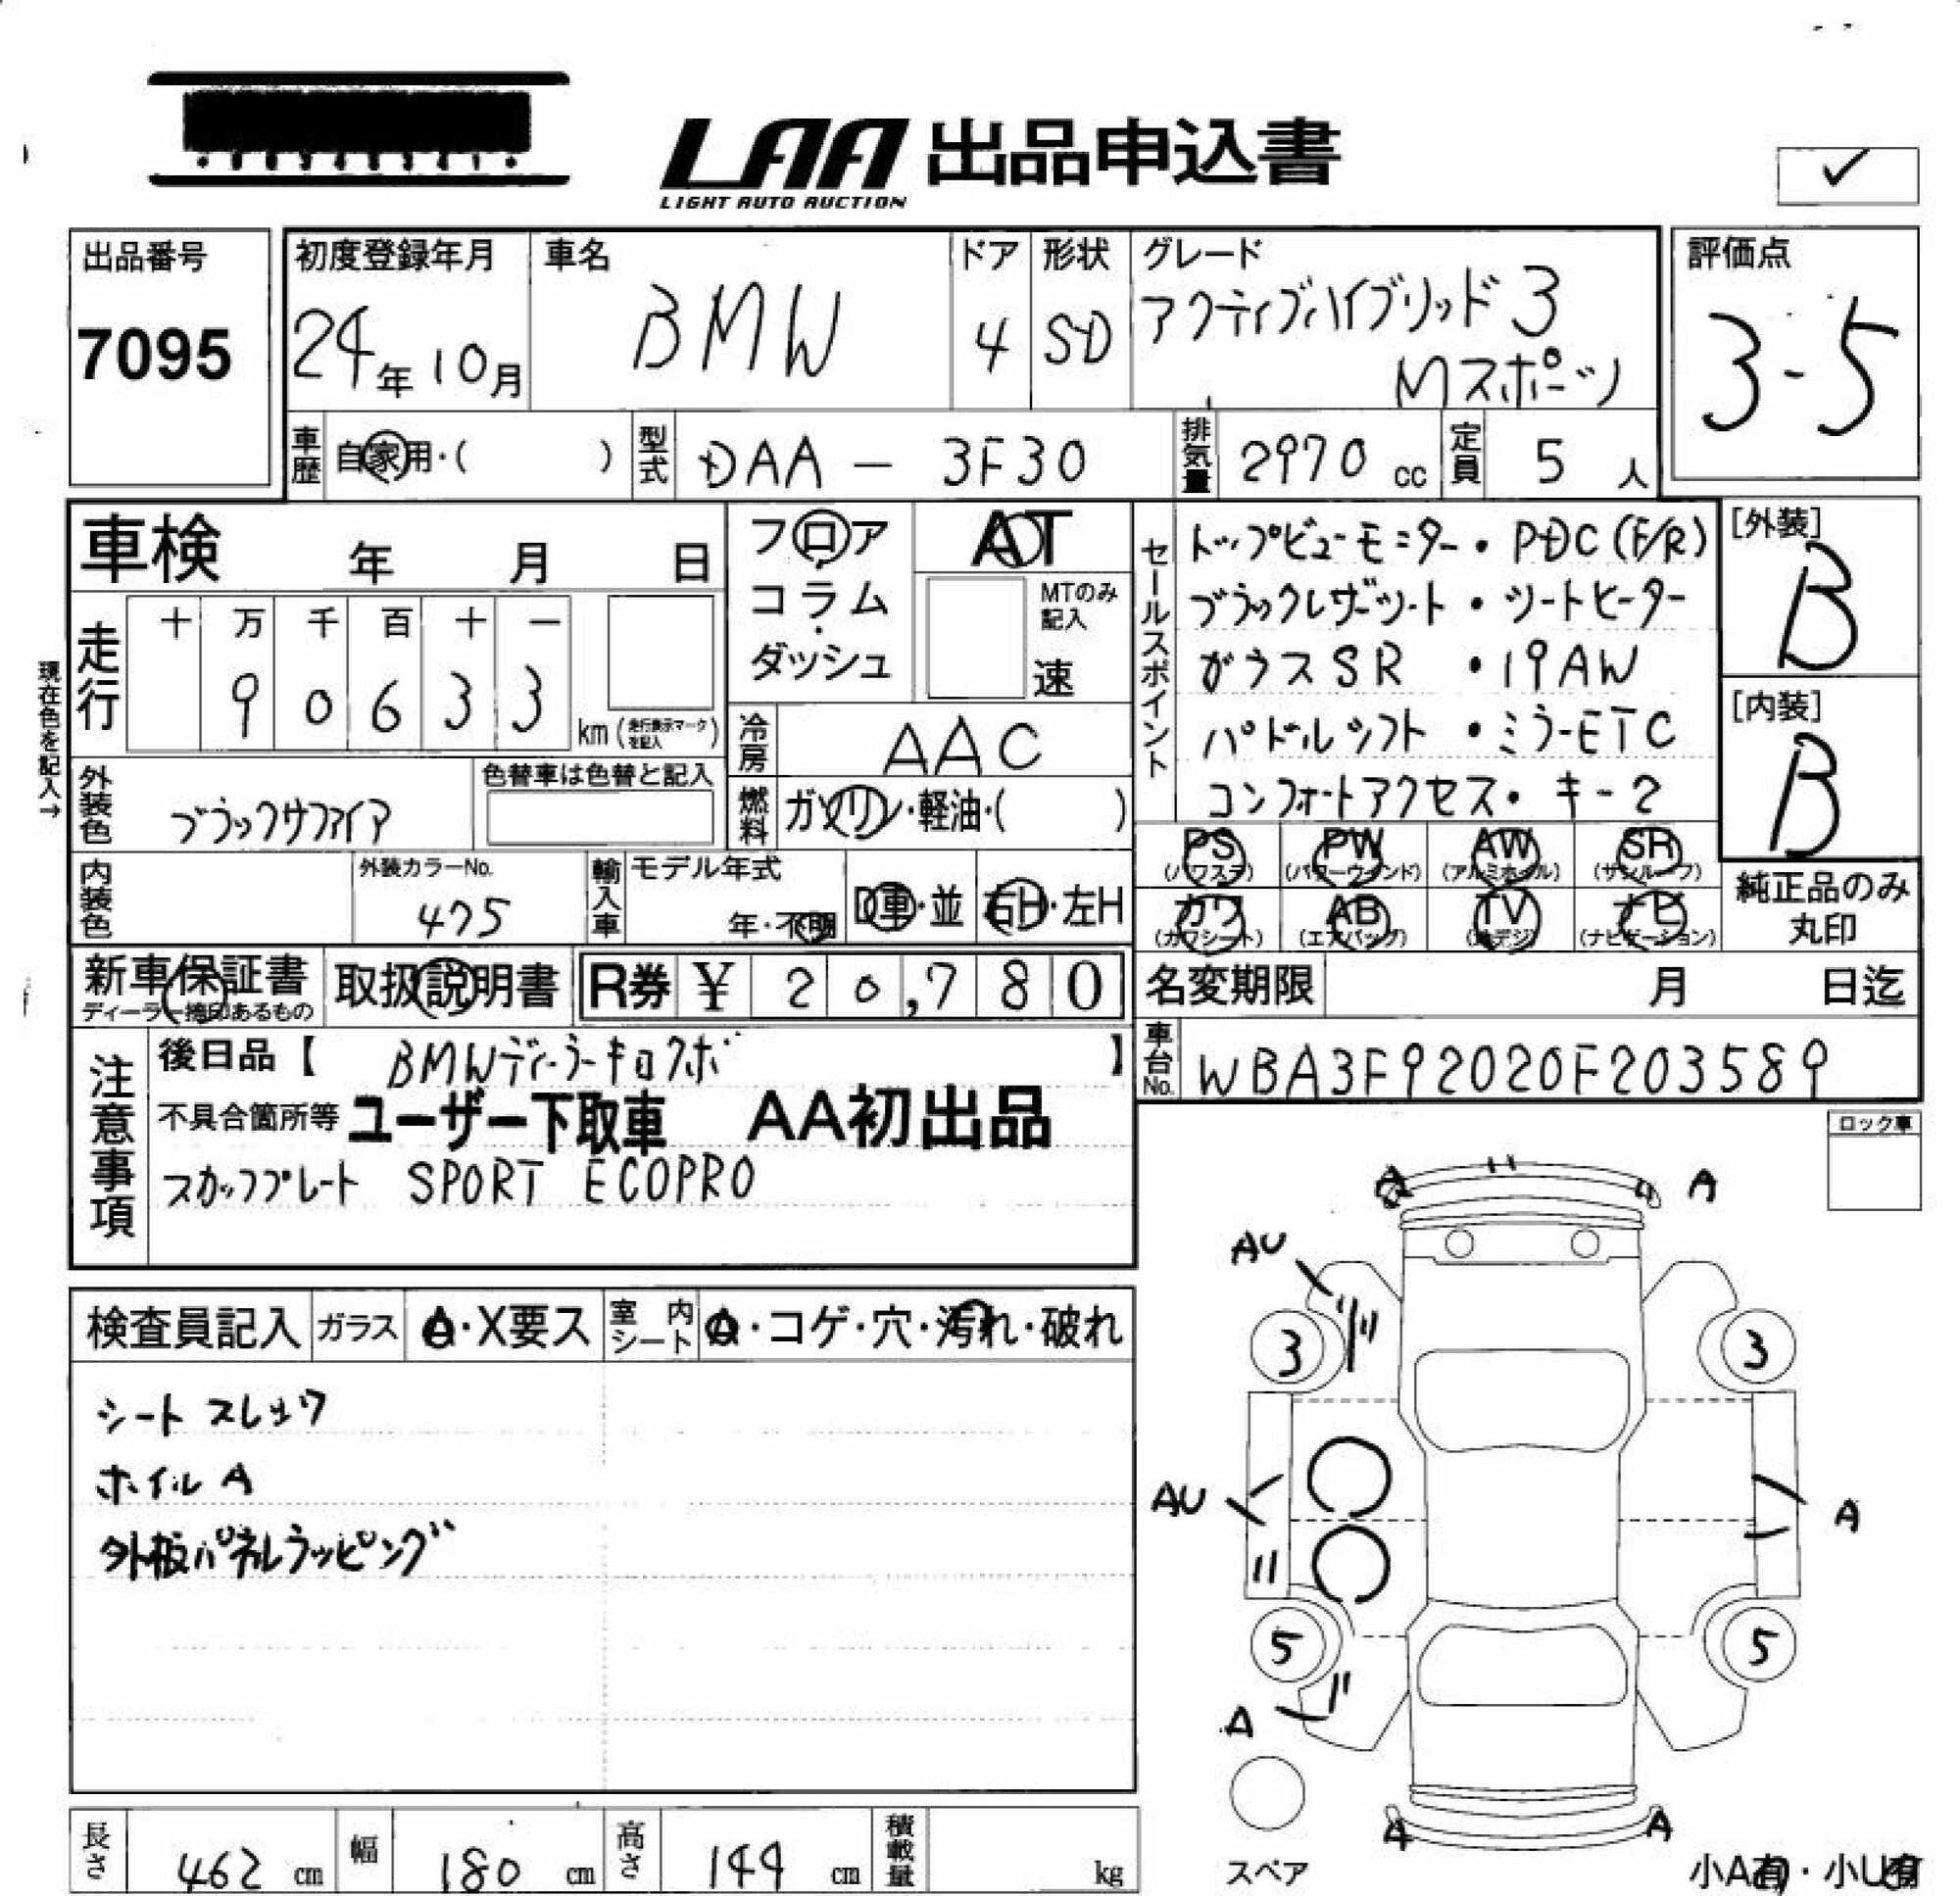 LAA 出品申込書
LIGHT AUTO AUCTION
出品番号
7095
初度登録年月
24年10月
車名
BMW
ドア
4
形状
SD
グレード
アクティブハイブリッド3
Mスポーツ
評価点
3-5
車歴 自家用・( )
型式 DAA - 3F30
排気量 2970 cc
定員 5 人
車検 年 月 日
走行
十 万 千 百 十 一
9 0 6 3 3
km(走行表示マークを記入)
現在色を記入→
外装色 ブラックサファイア
色替車は色替と記入
内装色
外装カラーNo.
475
輸入車
モデル年式
年・不明
D車・並
右H・左H
フロア
コラム
・
ダッシュ
AT
MTのみ
記入
速
冷房 AAC
燃料 ガソリン・軽油・( )
セールスポイント
トップビューモニター・PDC(F/R)
ブラックレザーシート・シートヒーター
ガラスSR ・19AW
パドルシフト ・ミラーETC
コンフォートアクセス・キー2
[外装]
B
[内装]
B
PS
(パワステ)
PW
(パワーウインド)
AW
(アルミホイル)
SR
(サンルーフ)
カワ
(カワシート)
AB
(エアバッグ)
TV
(地デジ)
ナビ
(ナビゲーション)
純正品のみ
丸印
新車保証書
ディーラー捺印あるもの
取扱説明書
R券 ¥ 20,780
名変期限 月 日迄
車台No. WBA3F92020F203589
注意事項
後日品【 BMWディーラーキロクボ 】
不具合箇所等 ユーザー下取車 AA初出品
スカッフプレート SPORT ECOPRO
ロック車
検査員記入
ガラス
A・X要ス
室内
シート
A・コゲ・穴・汚れ・破れ
シート スレ シワ
ホイル A
外板パネルラッピング
A
A
AU
3
3
AU
A
5
5
A
A
A
スペア
小A有・小U有
長さ 462 cm
幅 180 cm
高さ 144 cm
積載量 kg